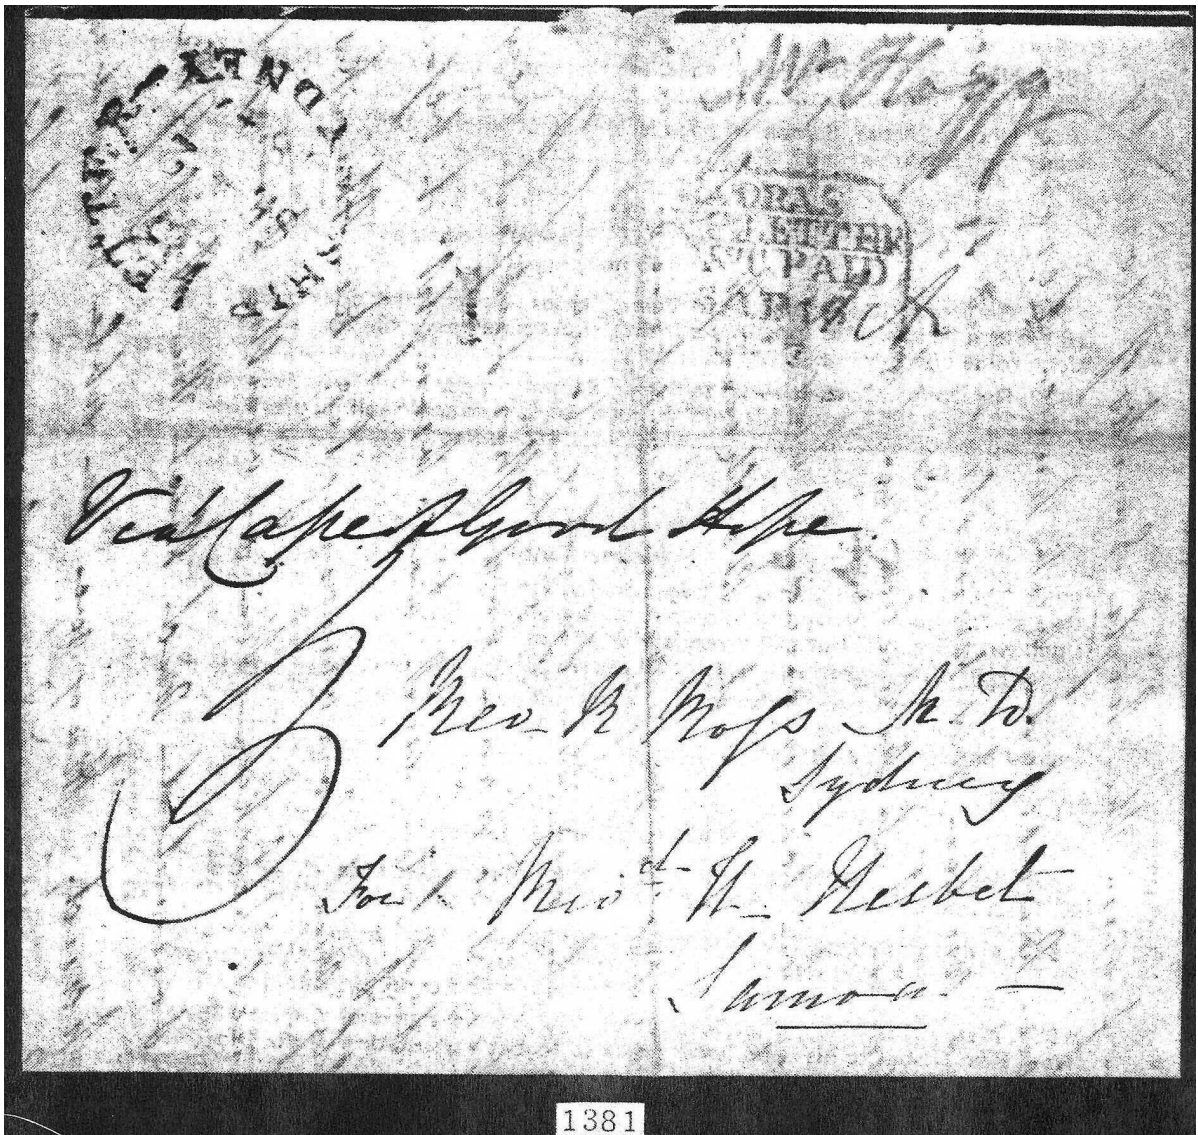 SYDNEY SHIP LETTER
Mr Hogg
LETTER
PAID
Via Cape of Good Hope
3
Rev. R Ross M.D.
Sydney
For Revd H. Nesbet
Samoa
1381